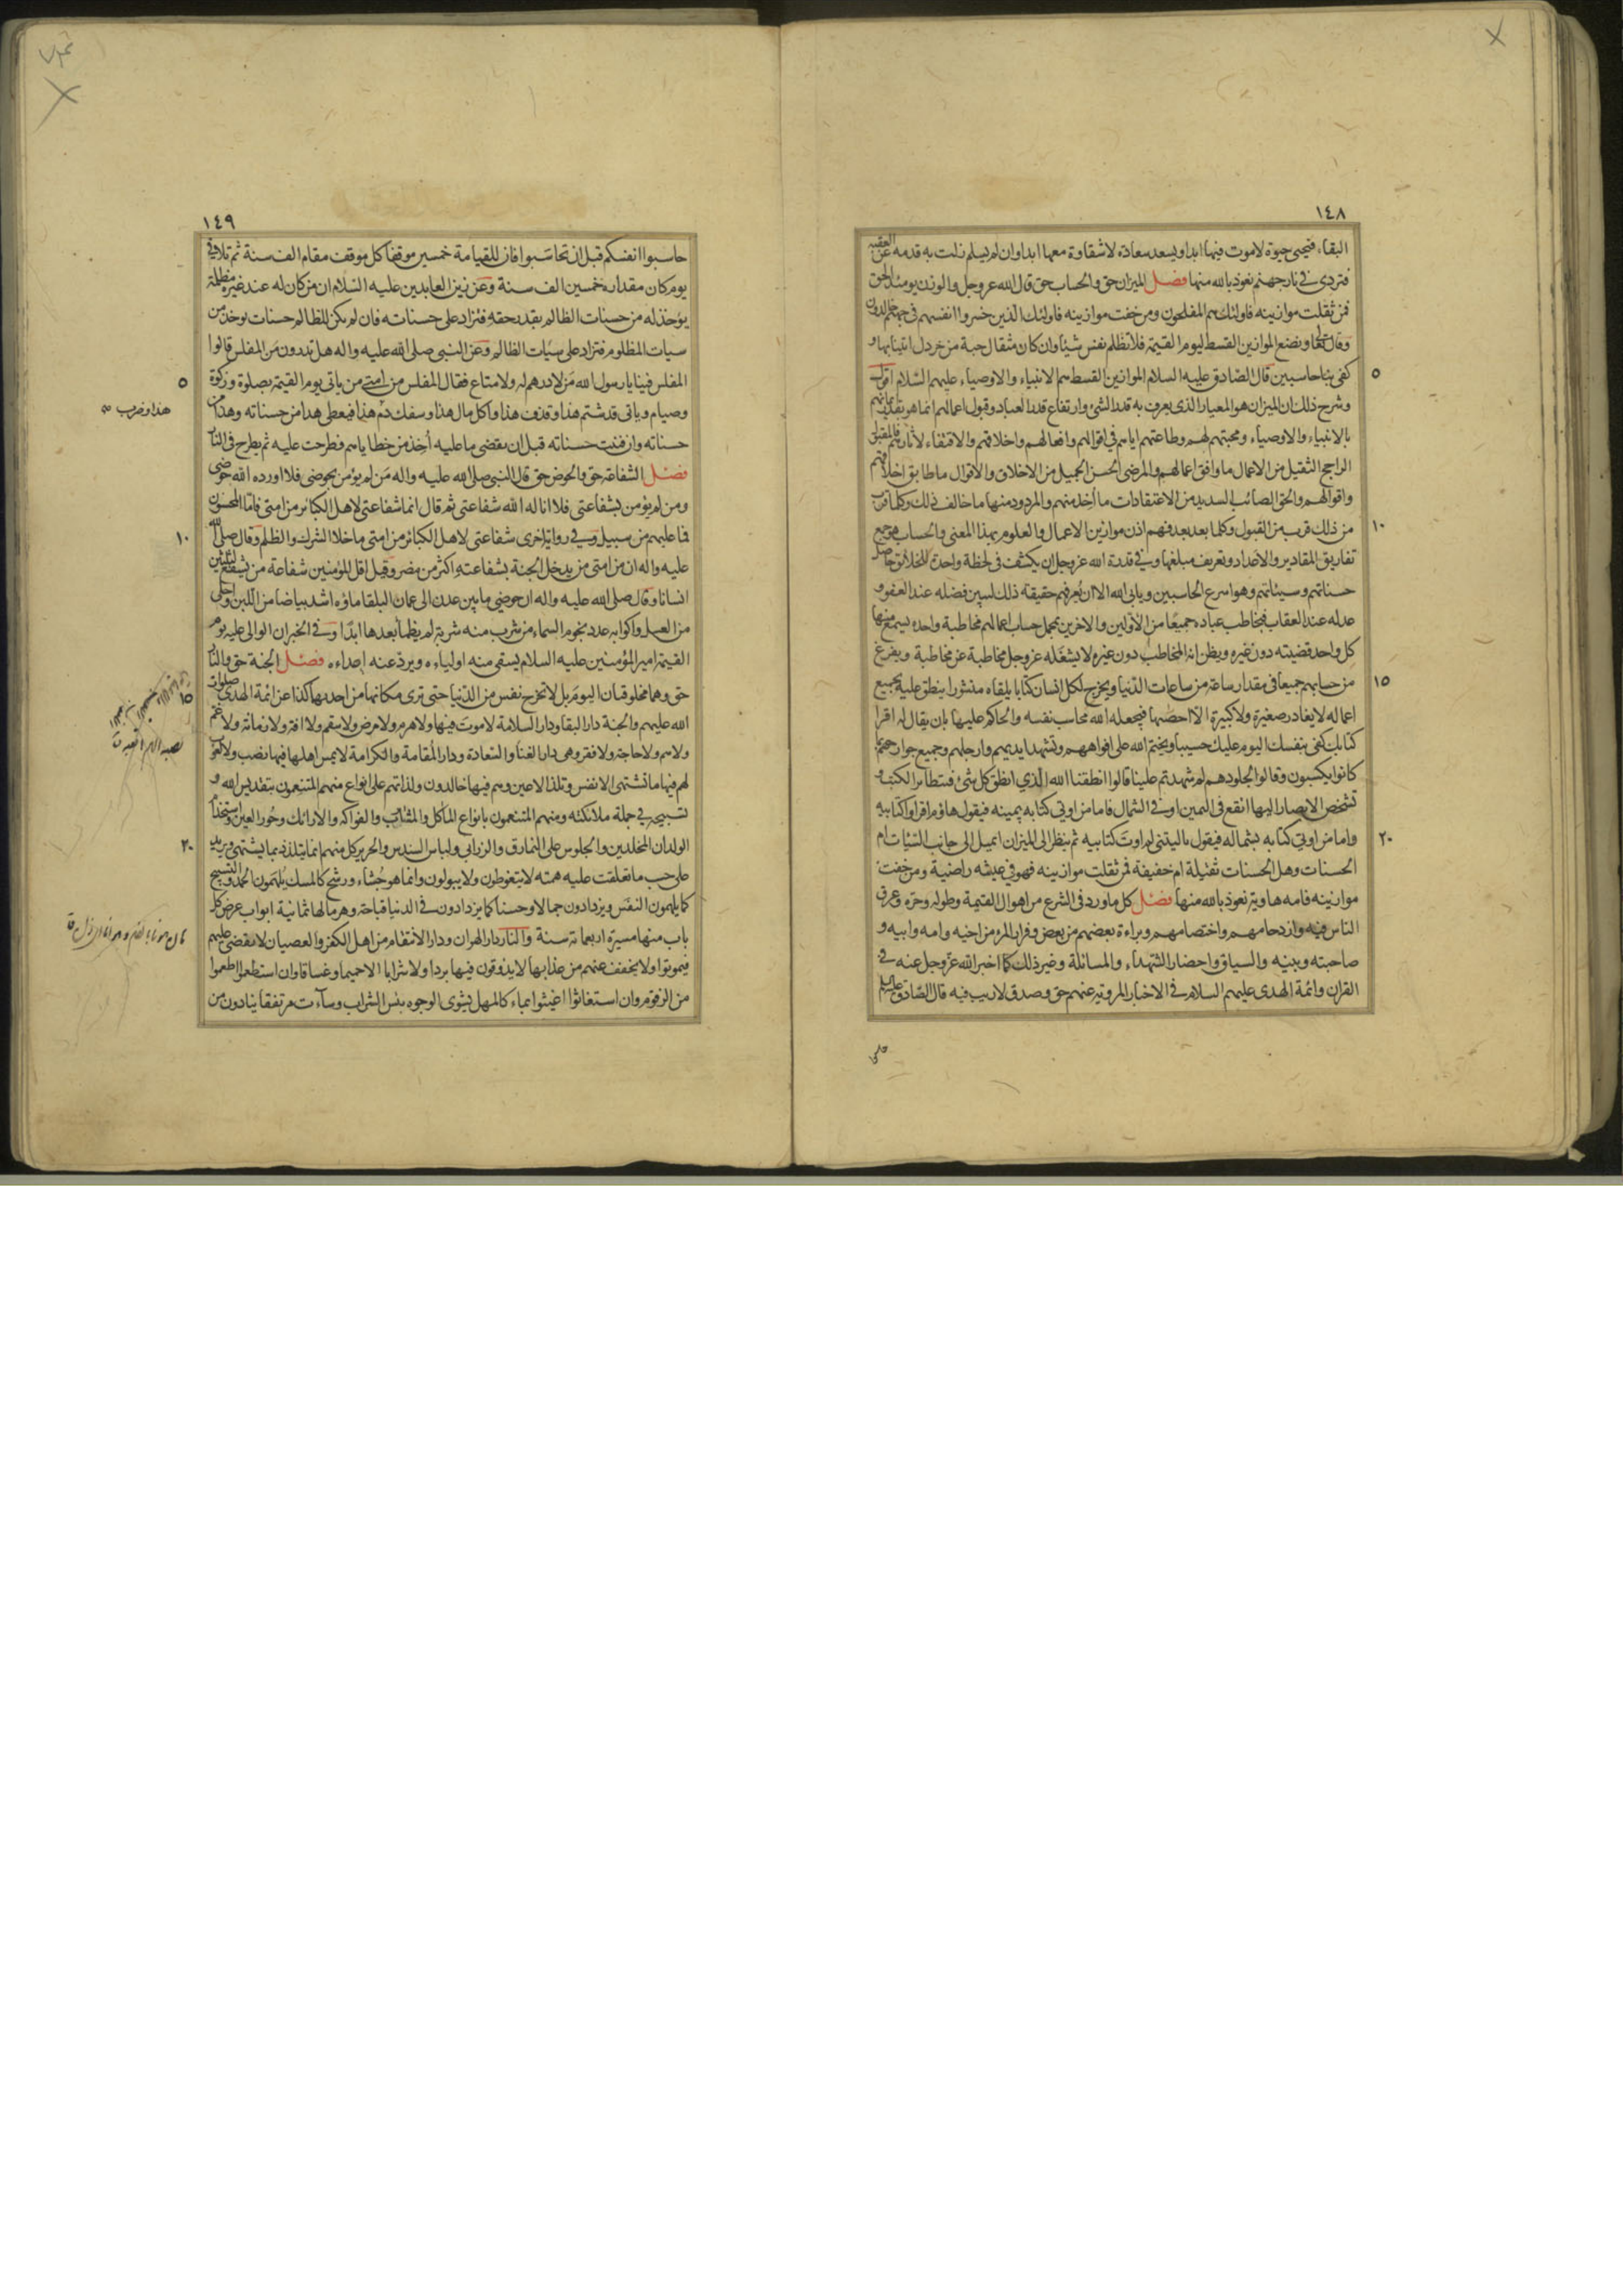 ١٤٨
البقاء فتحيى حيوة لاموت فيها ابدا ويسعد سعادة لاشقاوة معها ابدا وان لم يسلم زلت به قدمه عن العقبة
فتردى في نار جهنم نعوذ بالله منها فصل الميزان حق والحساب حق قال الله عز وجل والوزن يومئذ الحق
فمن ثقلت موازينه فاولئك هم المفلحون ومن خفت موازينه فاولئك الذين خسروا انفسهم في جهنم خالدون
وقال تعالى ونضع الموازين القسط ليوم القيمة فلا تظلم نفس شيئا وان كان مثقال حبة من خردل اتينا بها و
٥
كفى بنا حاسبين قال الصادق عليه السلام الموازين القسط هم الانبياء والاوصياء عليهم السلام اقول
وشرح ذلك ان الميزان هو المعيار الذي يعرف به قدر الشئ وارتفاع قدر العباد وقبول اعمالهم انما هو بقدر ايمانهم
بالانبياء والاوصياء ومحبتهم لهم وطاعتهم اياهم في اقوالهم وافعالهم واخلاقهم والاقتفاء لاثارهم فالمقبل
الراجح الثقيل من الاعمال ما وافق اعمالهم والمرضى الحسن الجميل من الاخلاق والاقوال ما طابق اخلاقهم
واقوالهم والحق الصائب السديد من الاعتقادات ما اخذ منهم والمردود منها ما خالف ذلك وكلما قرب
١٠
من ذلك قرب من القبول وكلما بعد بعد فهم اذن موازين الاعمال والعلوم بهذا المعنى والحساب هو جمع
تفاريق المقادير والاعداد وتعريف مبلغها وفي قدرة الله عز وجل ان يكشف في لحظة واحدة للخلائق حاصل
حسناتهم وسيئاتهم وهو اسرع الحاسبين ويابى الله الا ان يعرفهم حقيقة ذلك ليبين فضله عند العفو و
عدله عند العقاب فيخاطب عباده جميعا من الاولين والاخرين بمجمل حساب اعمالهم مخاطبة واحدة يسمع منها
كل واحد قضيته دون غيره ويظن انه المخاطب دون غيره لا يشغله عز وجل مخاطبة عن مخاطبة ويفرغ
١٥
من حسابهم جميعا في مقدار ساعة من ساعات الدنيا ويخرج لكل انسان كتابا يلقاه منشورا ينطق عليه بجميع
اعماله لا يغادر صغيرة ولا كبيرة الا احصيها فيجعله الله محاسب نفسه والحاكم عليها بان يقال له اقرا
كتابك كفى بنفسك اليوم عليك حسيبا ويختم الله على افواههم وتشهد ايديهم وارجلهم وجميع جوارحهم بما
كانوا يكسبون وقالوا لجلودهم لم شهدتم علينا قالوا انطقنا الله الذي انطق كل شئ فتتطاير الكتب و
تشخص الابصار اليها اتقع في اليمين او في الشمال فاما من اوتي كتابه بيمينه فيقول هاؤم اقراوا كتابيه
٢٠
واما من اوتي كتابه بشماله فيقول ياليتني لم اوت كتابيه ثم ينظر الى الميزان ايميل الى جانب السيئات ام
الحسنات وهل الحسنات ثقيلة ام خفيفة فمن ثقلت موازينه فهو في عيشه راضية ومن خفت
موازينه فامه هاوية نعوذ بالله منها فصل كل ما ورد في الشرع من اهوال القيمة وطوله وحره وعرق
الناس فيه وازدحامهم واختصامهم وبراءة بعضهم من بعض وفرار المرء من اخيه وامه وابيه و
صاحبته وبنيه والسياق واحضار الشهداء والمسائلة وغير ذلك كما اخبر الله عز وجل عنه في
القران وائمة الهدى عليهم السلام في الاخبار المروية عنهم حق وصدق لا ريب فيه قال الصادق عليه السلم
١٤٩
حاسبوا انفسكم قبل ان تحاسبوا فان للقيامة خمسين موقفا كل موقف مقام الف سنة ثم تلا في
يوم كان مقداره خمسين الف سنة وعن زين العابدين عليه السلام ان من كان له عند غيره مظلمة
يؤخذ له من حسنات الظالم بقدر حقه فتزاد على حسناته فان لم يكن للظالم حسنات يؤخذ من
سيات المظلوم فتزاد على سيات الظالم وعن النبي صلى الله عليه واله هل تدرون من المفلس قالوا
٥
المفلس فينا يا رسول الله من لا درهم له ولا متاع فقال المفلس من امتي من ياتي يوم القيمة بصلوة وزكوة
وصيام وياتى قد شتم هذا وقذف هذا واكل مال هذا وسفك دم هذا فيعطى هذا من حسناته وهذا من
هذا وضرب
حسناته وان فنيت حسناته قبل ان يقضى ما عليه اخذ من خطاياهم فطرحت عليه ثم يطرح في النار
فصل الشفاعة حق والحوض حق قال النبي صلى الله عليه واله من لم يؤمن بحوضي فلا اورده الله حوضي
ومن لم يؤمن بشفاعتي فلا اناله الله شفاعتي ثم قال انما شفاعتي لاهل الكبائر من امتي فاما المحسنون
١٠
فما عليهم من سبيل وفي رواية اخرى شفاعتي لاهل الكبائر من امتي ما خلا الشرك والظلم وقال صلى الله
عليه واله ان من امتي من يدخل الجنة بشفاعته اكثر من مضر وقيل اقل المؤمنين شفاعة من يشفع لثلثين
انسانا وقال صلى الله عليه واله ان حوضي ما بين عدن الى عمان البلقا ماؤه اشد بياضا من اللبن واحلى
من العسل واكوابه عدد نجوم السماء من شرب منه شربة لم يظمأ بعدها ابدا وفي الخبر ان الوالي عليه يوم
القيمة امير المؤمنين عليه السلام يسقى منه اولياءه ويرد عنه اعداءه فصل الجنة حق والنار
١٥
حق وهما مخلوقتان اليوم بل لا تخرج نفس من الدنيا حتى ترى مكانها من احديهما كذا عن ائمة الهدى صلوات
الله عليهم والجنة دار البقا ودار السلامة لا موت فيها ولا هرم ولا مرض ولا سقم ولا افة ولا زمانة ولا غم
ولا هم ولا حاجة ولا فقر وهى دار الغنا والسعادة ودار المقامة والكرامة لا يمس اهلها فيها نصب ولا لغوب
لهم فيها ما تشتهى الانفس وتلذ الاعين وهم فيها خالدون ولذاتهم على انواع منهم المتنعمون بتقديس الله و
تسبيحه في جملة ملائكته ومنهم المتنعمون بانواع المآكل والمشارب والفواكه والارائك وحور العين واستخدام
٢٠
الولدان المخلدين والجلوس على النمارق والزرابي ولباس السندس والحرير كل منهم انما يتلذذ بما يشتهى ويريد
على حسب ما تعلقت عليه همته لا يتغوطون ولا يبولون وانما هو جشاء ورشح كالمسك يلهمون الحمد والتسبيح
كما يلهمون النفس ويزدادون جمالا وحسنا كما يزدادون في الدنيا قباحة وهرما لها ثمانية ابواب عرض كل
باب منها مسيرة اربعمائة سنة والنار دار الهوان ودار الانتقام من اهل الكفر والعصيان لا يقضى عليهم
فيموتوا ولا يخفف عنهم من عذابها لا يذوقون فيها بردا ولا شرابا الا حميما وغساقا وان استطعموا اطعموا
من الزقوم وان استغاثوا اغيثوا بماء كالمهل يشوى الوجوه بئس الشراب وساءت مرتفقا ينادون من